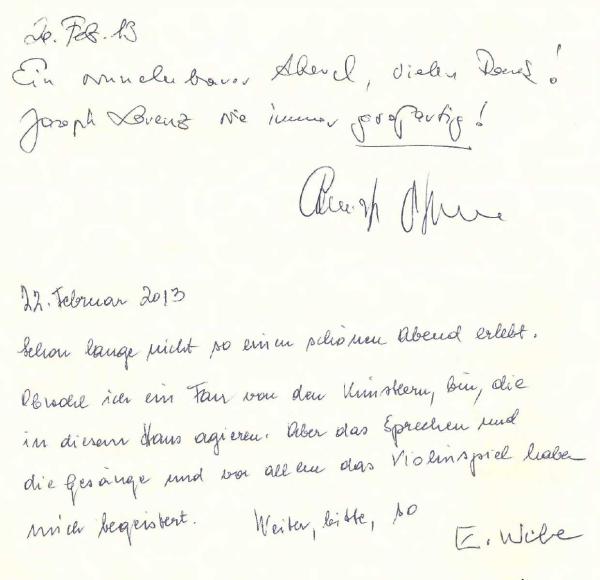 20. Feb. 13
Ein wunderbarer Abend, vielen Dank!
Joseph Lorenz wie immer großartig!
22. Februar 2013
Schon lange nicht so einen schönen Abend erlebt.
Obwohl ich ein Fan von den Künstlern, bin, die
in diesem Haus agieren. Aber das Sprechen und
die Gesänge und vor allem das Violinspiel haben
mich begeistert. Weiter, bitte, so
E. Wibe